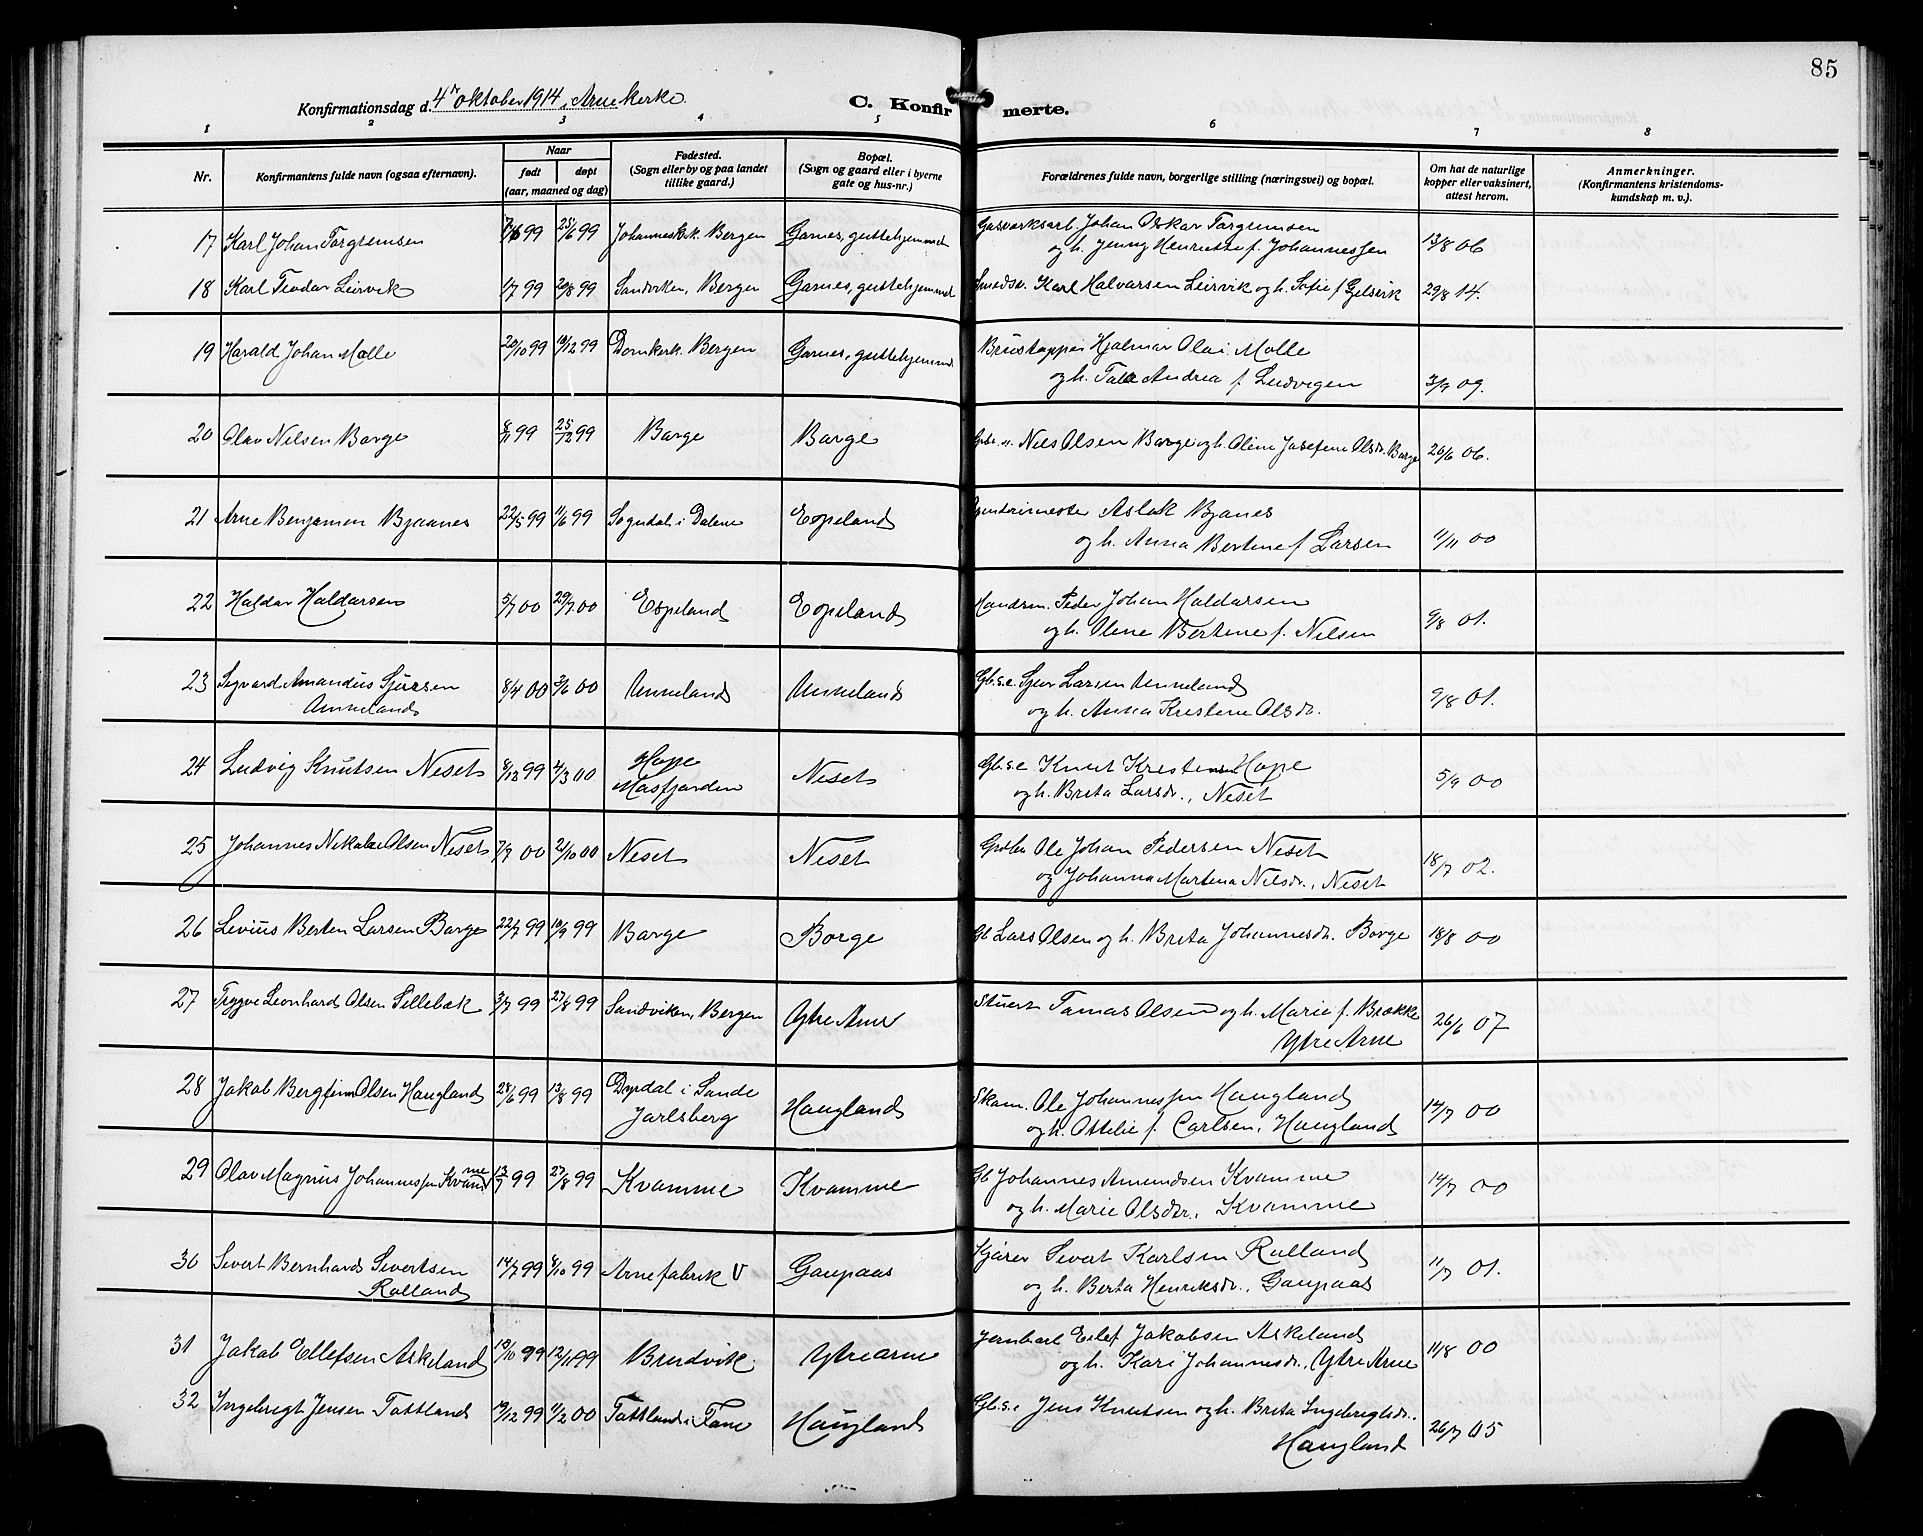 85
Konfirmationsdag d. 4de oktober 1914 i Arne kirke.
C. Konfirmerte.
1 2 3 4 5 6 7 8
Nr.
Konfirmantens fulde navn (ogsaa efternavn).
Naar
født døpt
(aar, maaned og dag)
Fødested.
(Sogn eller by og paa landet
tillike gaard.)
Bopæl.
(Sogn og gaard eller i byerne
gate og hus-nr.)
Forældrenes fulde navn, borgerlige stilling (næringsvei) og bopæl.
Om hat de naturlige
kopper eller vaksinert,
attest herom.
Anmerkninger.
(Konfirmantens kristendoms-
kundskap m. v.).
17 Karl Johan Torgremsen 99 25/6 99 Johanneskk. Bergen Garnes, guttehjemmet Gasverksarb. Johan Oskar Torgremsen
og h. Jenny Henriette f. Johannessen 13/8 06
18 Karl Teodor Leirvik 1/7 99 20/8 99 Sandviken, Bergen Garnes, guttehjemmet Smedsv. Karl Halvarsen Leirvik og h. Sofie f. Gelsvik 29/8 14.
19 Harald Johan Molle 20/10 99 10/12 99 Domkirk. Bergen Garnes, guttehjemmet Brustapper Hjalmar Olai Molle
og h. Andrea f. Ludvigsen 3/9 09.
20 Olav Nilsen Borge 8/11 99 25/12 99 Borge Borge Nils Olsen Borge og h. Oline Josefine Olsdr. Borge 26/6 06.
21 Arne Benjamin Bjaanes 22/5 99 11/6 99 Sogndal i Dalene Espeland Aslak Bjanes
og h. Anna Bertine f. Larsen 11/11 00
22 Haldor Haldorsen 5/7 00 29/7 00 Espeland Espeland Handsm. Peder Johan Haldorsen
og h. Oline Bertine f. Nilsen 9/8 01.
23 Sigvard Amandus Sjursen 8/4 00 3/6 00 Unneland Unneland Gb.s.e. Sjur Larsen Unneland
Unneland og h. Anna Kristine Olsdr. 9/8 01.
24 Ludvig Knutsen Neset 8/12 99 4/3 00 Hope Neset Gb.s.e Knut Kristensen Hope
Masfjorden og h. Brita Larsdr., Neset 5/9 00
25 Johannes Nikolai Olsen Neset 7/9 00 21/10 00 Neset Neset Grdbr. Ole Johan Pedersen Neset
og Johanna Martina Nilsdr., Neset 18/7 02.
26 Levius Berten Larsen Borge 22/7 99 10/9 99 Borge Borge Gb Lars Olsen og h. Brita Johannesdr. Borge 18/8 00
27 Trygve Leonhard Olsen Sellebæk 3/7 99 27/8 99 Sandviken, Bergen Ytre Arne Stuert Tomas Olsen og h. Marie f. Brekke
Ytre Arne 26/6 07
28 Jakob Bergfinn Olsen Haugland 28/6 99 13/8 99 Dyrdal i Sande Haugland Skom. Ole Johannessen Haugland
Jarlsberg og h. Ottilie f. Carlsen, Haugland 14/7 00
29 Olav Magnus Johannessen Kvamme 13/7 99 27/8 99 Kvamme Kvamme Gb Johannes Amundsen Kvamme
og h. Marie Olsdtr. Kvamme 14/7 00
30 Sivert Bernhard Sivertsen 14/7 99 8/10 99 Arne fabrik V Gaupaas Kjører Sivert Karlsen Rolland
Rolland og h. Berta Henriksdr., Gaupaas 11/7 01.
31 Jakob Ellefsen Askeland 18/10 99 12/11 99 Bruvik Ytre Arne Jernbarb Ellef Jakobsen Askeland
og h. Kari Johannesdr., Ytre Arne 11/8 00
32 Ingebrigt Jensen Tottland 19/12 99 11/2 00 Tottland i Fane Haugland Gb.s.e Jens Knutsen og h. Brita Ingebrigtsdr.
Haugland 26/7 05